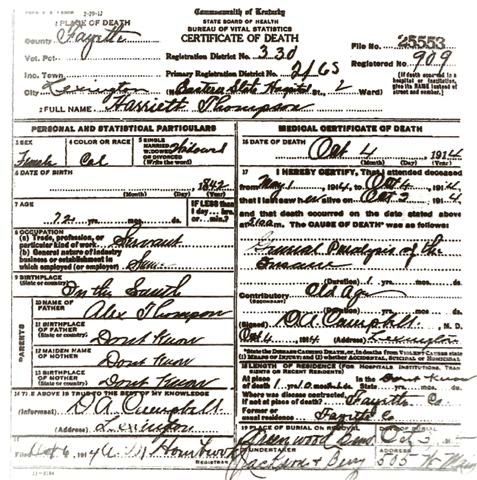 2-29-12
Commonwealth of Kentucky
STATE BOARD OF HEALTH
BUREAU OF VITAL STATISTICS
CERTIFICATE OF DEATH
1 PLACE OF DEATH
County Fayette
Vot. Pct.
Registration District No. 330
File No. 25553
Inc. Town
Primary Registration District No. 2165
Registered No. 909
City Lexington (No. Eastern State Hospital St., 2 Ward)
(If death occurred in a hospital or institution, give its NAME instead of street and number.)
2 FULL NAME Harriett Thompson
PERSONAL AND STATISTICAL PARTICULARS
3 SEX Female
4 COLOR OR RACE Col
5 SINGLE MARRIED WIDOWED OR DIVORCED (Write the word) Widowed
6 DATE OF BIRTH 1842
(Month) (Day) (Year)
7 AGE 72 yrs. mos. ds.
IF LESS than 1 day, hrs. or min.?
8 OCCUPATION
(a) Trade, profession, or particular kind of work Servant
(b) General nature of industry business or establishment in which employed (or employer) Same
9 BIRTHPLACE (State or country) In the South
PARENTS
10 NAME OF FATHER Alex Thompson
11 BIRTHPLACE OF FATHER (State or country) Dont Know
12 MAIDEN NAME OF MOTHER Dont Know
13 BIRTHPLACE OF MOTHER (State or country) Dont Know
14 THE ABOVE IS TRUE TO THE BEST OF MY KNOWLEDGE
(Informant) D A Campbell
(Address) Lexington
15
Filed Oct 6, 1914
REGISTRAR
11-3184
MEDICAL CERTIFICATE OF DEATH
16 DATE OF DEATH Oct 4 1914
(Month) (Day) (Year)
17 I HEREBY CERTIFY, That I attended deceased
from May 1, 1914, to Oct 4, 1914
that I last saw h alive on Oct 3, 1914
and that death occurred on the date stated above
at m. The CAUSE OF DEATH* was as follows
General Paralysis of the
Insane
(Duration) 1 yrs. mos. ds.
Contributory Old Age
(Secondary)
(Duration) yrs. mos. ds.
(Signed) D A Campbell, M. D.
Oct 4, 1914 (Address) Lexington
*State the DISEASE CAUSING DEATH, or, in deaths from VIOLENT CAUSES state (1) MEANS OF INJURY; and (2) whether ACCIDENTAL, SUICIDAL or HOMICIDAL
18 LENGTH OF RESIDENCE (FOR HOSPITALS, INSTITUTIONS, TRANSIENTS OR RECENT RESIDENTS)
At place of death 1 yrs. mos. ds. In the State Dont Know
Where was disease contracted, if not at place of death? Fayette Co
Former or usual residence Fayette Co
19 PLACE OF BURIAL OR REMOVAL Greenwood
20 UNDERTAKER Jackson & Berry
ADDRESS 505 W Main